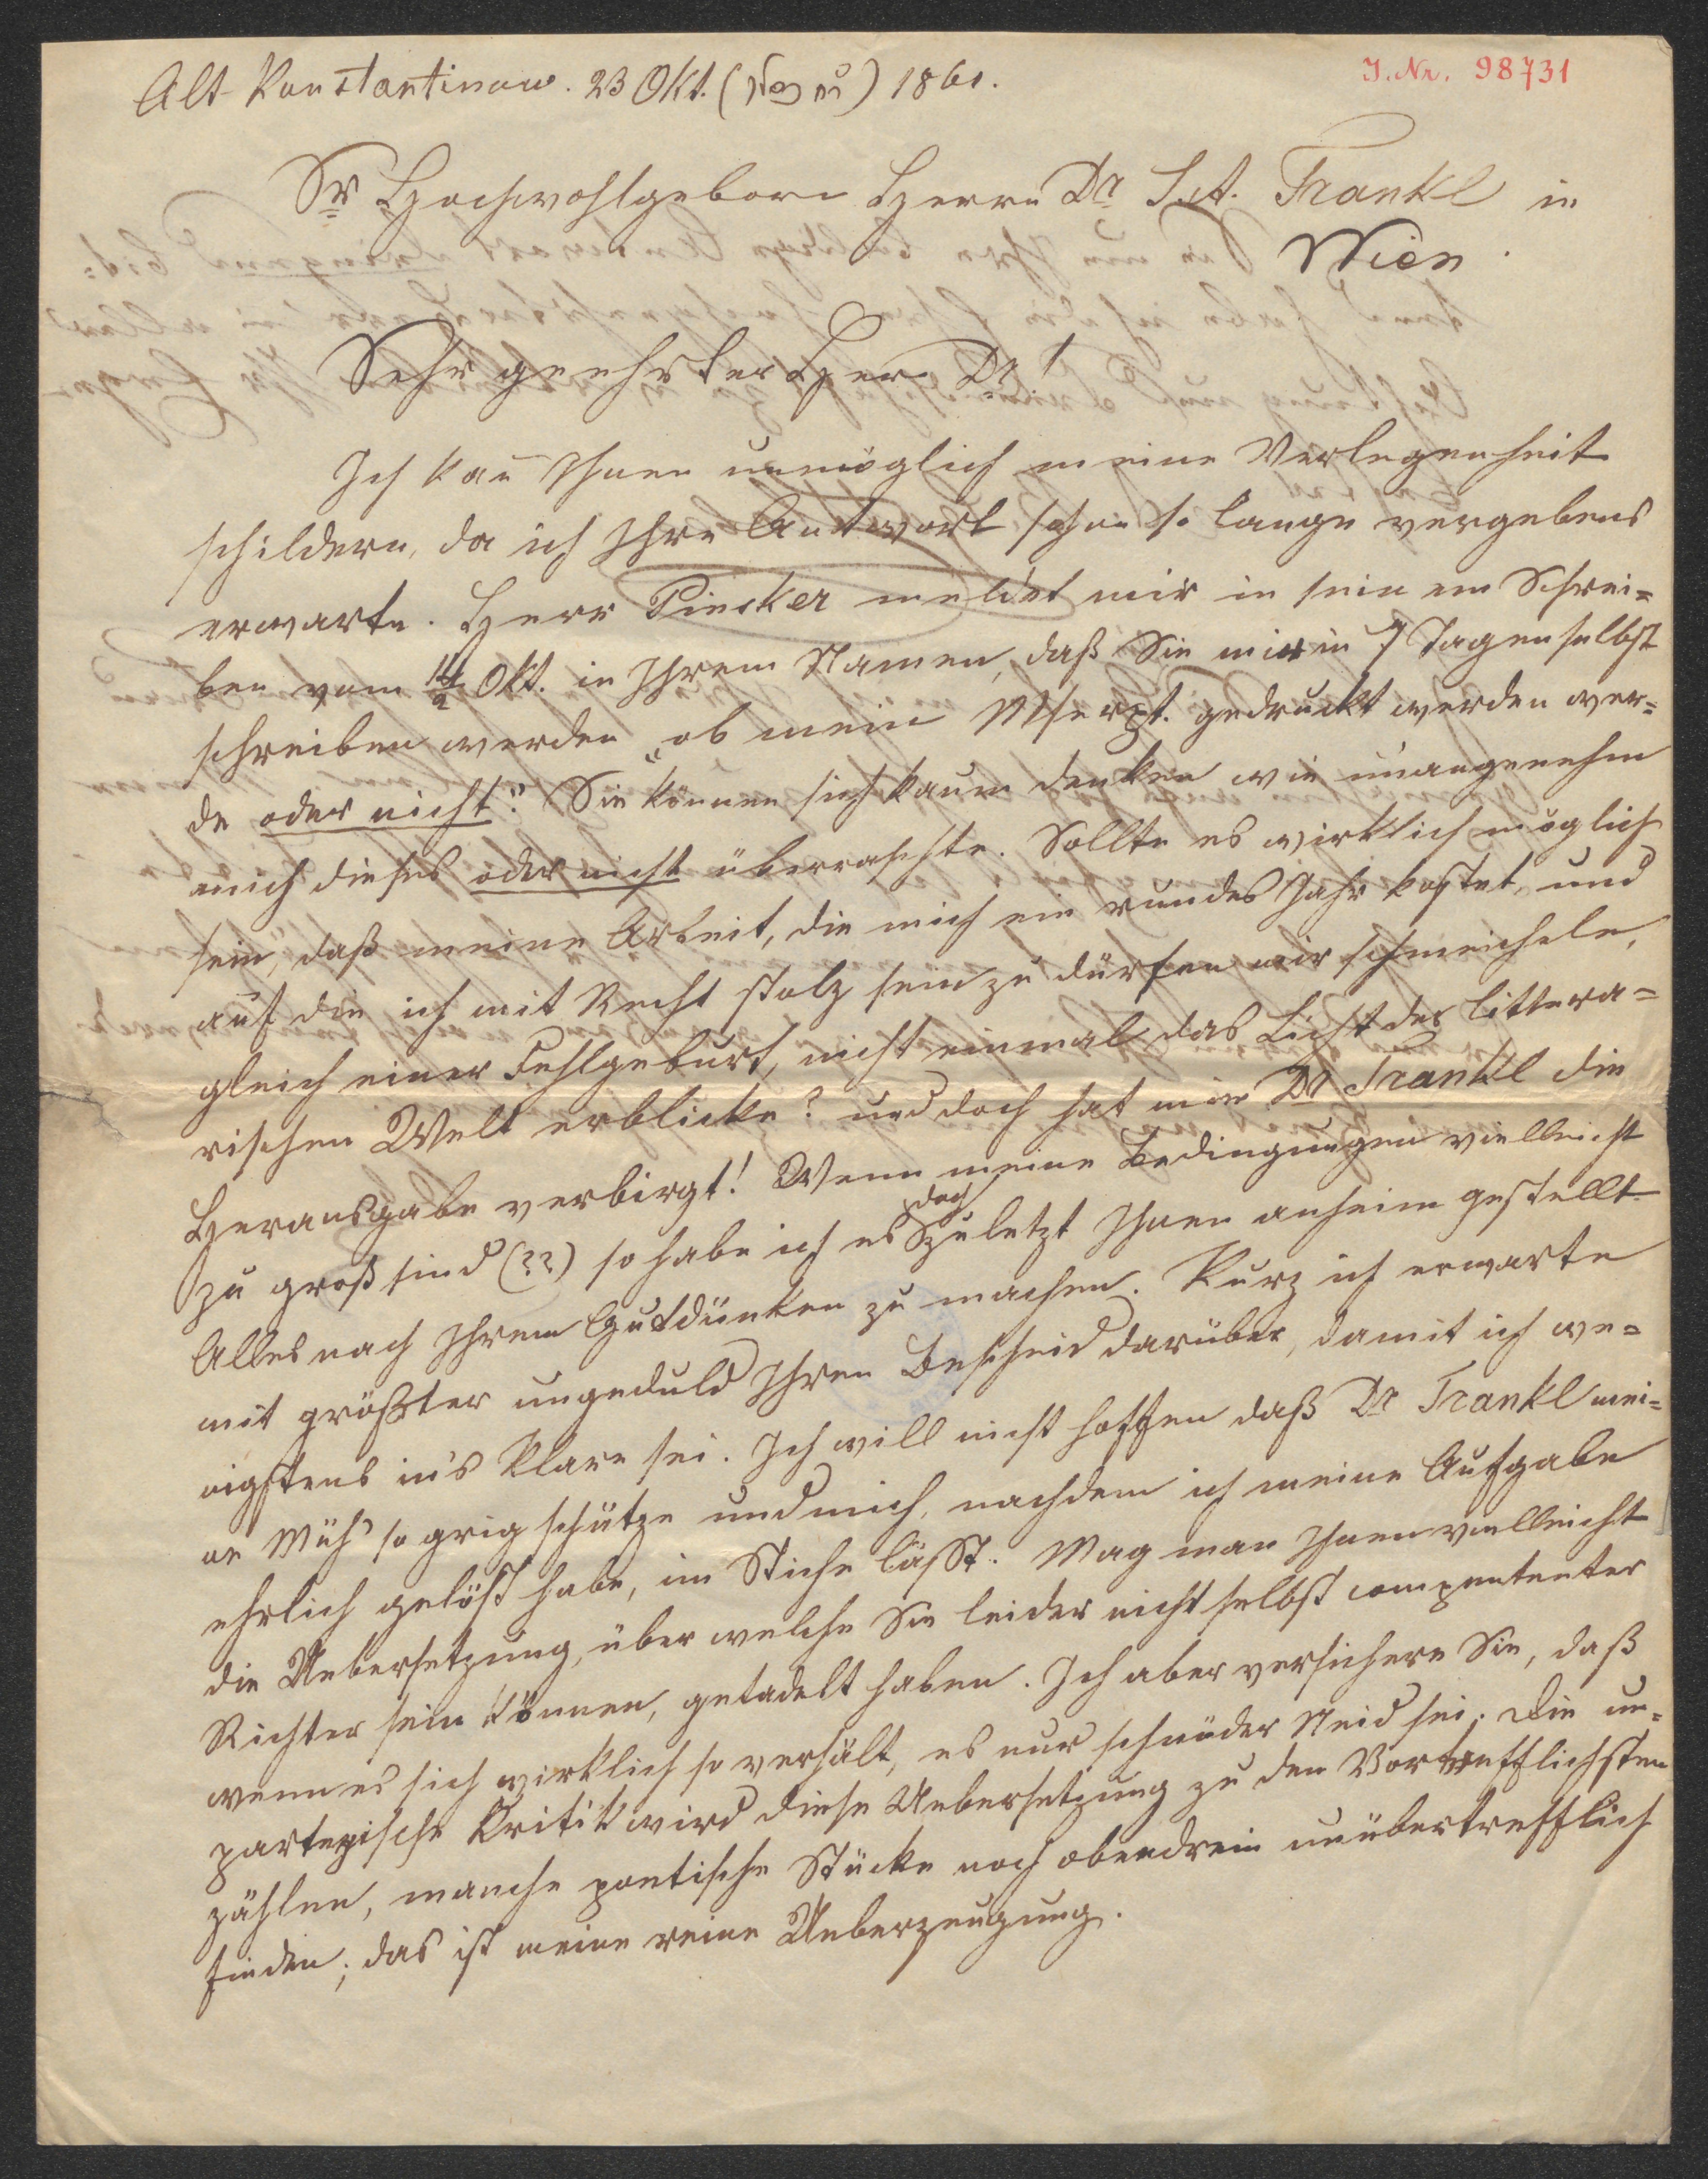 Alt Konstantinow. 23 Okt. ( ) 1861.
J. Nr. 98731
Sr Hochwohlgeborn Herrn Dr L. A. Frankl in
Wien.
Sehr geehrter Herr Dr!
Ich kan̄ Ihnen unmöglich meine Verlegenheit
schildern, da ich Ihre Antwort schon so lange vergebens
erwarte. Herr Pinsker meldet mir in seinem Schrei=
ben vom Okt. in Ihrem Namen, daß Sie mir in 7 Tagen selbst
schreiben werden „ob mein Mscrpt. gedruckt werden wer=
de oder nicht“? Sie können sich kaum denken wie unangenehm
mich dieses oder nicht überraschte. Sollte es wirklich möglich
sein, daß meine Arbeit, die mich ein rundes Jahr kostet, und
auf die ich mit Recht stolz sein zu dürfen mir schmeichele,
gleich einer Fehlgeburt, nicht einmal das Licht der littera=
rischen Welt erblicke? und doch hat mir Dr Frankl die
Herausgabe verbirgt! Wenn meine Bedingungen vielleicht
zu groß sind (??) so habe ich es doch zuletzt Ihnen anheim gestellt
Alles nach Ihrem Gutdünken zu machen. Kurz ich erwarte
mit größter ungeduld Ihren Bescheid darüber, damit ich we=
nigstens in's Klare sei. Ich will nicht hoffen daß Dr Frankl mei=
ne Müh' so grig schätze und mich, nachdem ich meine Aufgabe
ehrlich gelößt habe, im Stiche läßt. Mag man Ihnen vielleicht
die Uebersetzung, über welche Sie leider nicht selbst competenter
Richter sein können, getadelt haben. Ich aber versichere Sie, daß
wenn es sich wirklich so verhält, es nur schnöder Neid sei. Die un=
parteyische Kritik wird diese Uebersetzung zu den Vortrefflichsten
zählen, manche poetische Stücke noch obendrein unübertrefflich
finden; das ist meine reine Ueberzeugung.